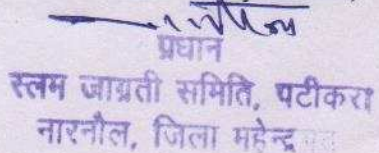 प्रधान
स्लम जाग्रती समिति, पटीकरा
नारनौल, जिला महेन्द्र